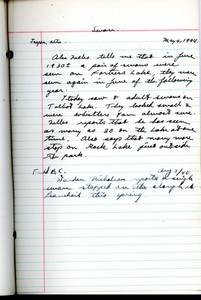 Swans
Jasper, alta. May 4, 1944.
Alex Nelles tells me that in June
1930± a pair of swans were
seen on Fortress Lake, they were
seen again in June of the following
year.
Today saw 8 adult swans on
Talbot Lake. They looked small &
were whistlers I am almost sure.
Nelles reports that he has seen
as many as 80 on the lake at one
time. Also says that many more
stop on Rock Lake just outside
the park.
Aug 3/44
Warden Nicholson reports a single
swan stopped in the slough at
this spring.